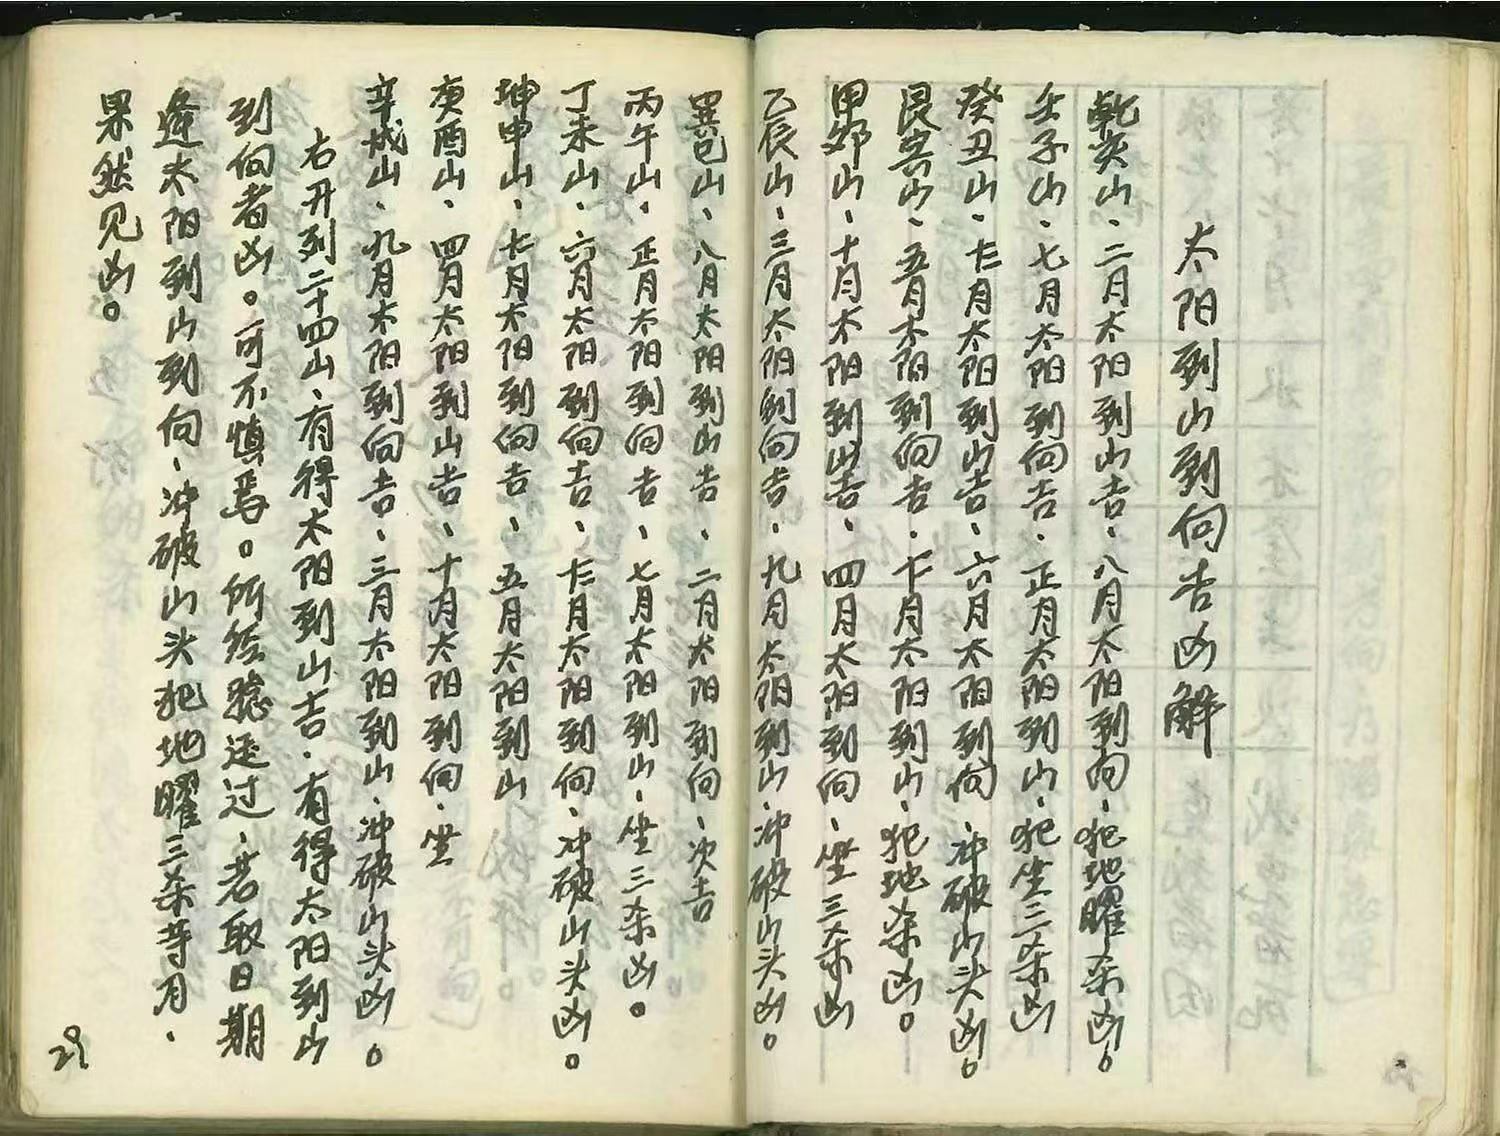 太阳到山到向吉凶解
乾亥山、二月太阳到山吉、八月太阳到向、犯地曜杀凶。
壬子山、七月太阳到向吉、正月太阳到山、犯坐三杀凶
癸丑山、十二月太阳到山吉、六月太阳到向、冲破山头凶。
艮寅山、五月太阳到向吉、十一月太阳到山、犯地杀凶。
甲卯山、十月太阳到山吉、四月太阳到向、坐三杀凶
乙辰山、三月太阳到向吉、九月太阳到山、冲破山头凶。
巽巳山、八月太阳到山吉、二月太阳到向、次吉
丙午山、正月太阳到向吉、七月太阳到山、坐三杀凶。
丁未山、六月太阳到向吉、十二月太阳到向、冲破山头凶。
坤申山、十一月太阳到向吉、五月太阳到山
庚酉山、四月太阳到山吉、十月太阳到向、坐
辛戌山、九月太阳到向吉、三月太阳到山、冲破山头凶。
右开列二十四山、有得太阳到山吉、有得太阳到山
到向者凶。可不慎焉。所经验过、若取日期
逢太阳到山到向、冲破山头犯地曜三杀等月、
果然见凶。
29